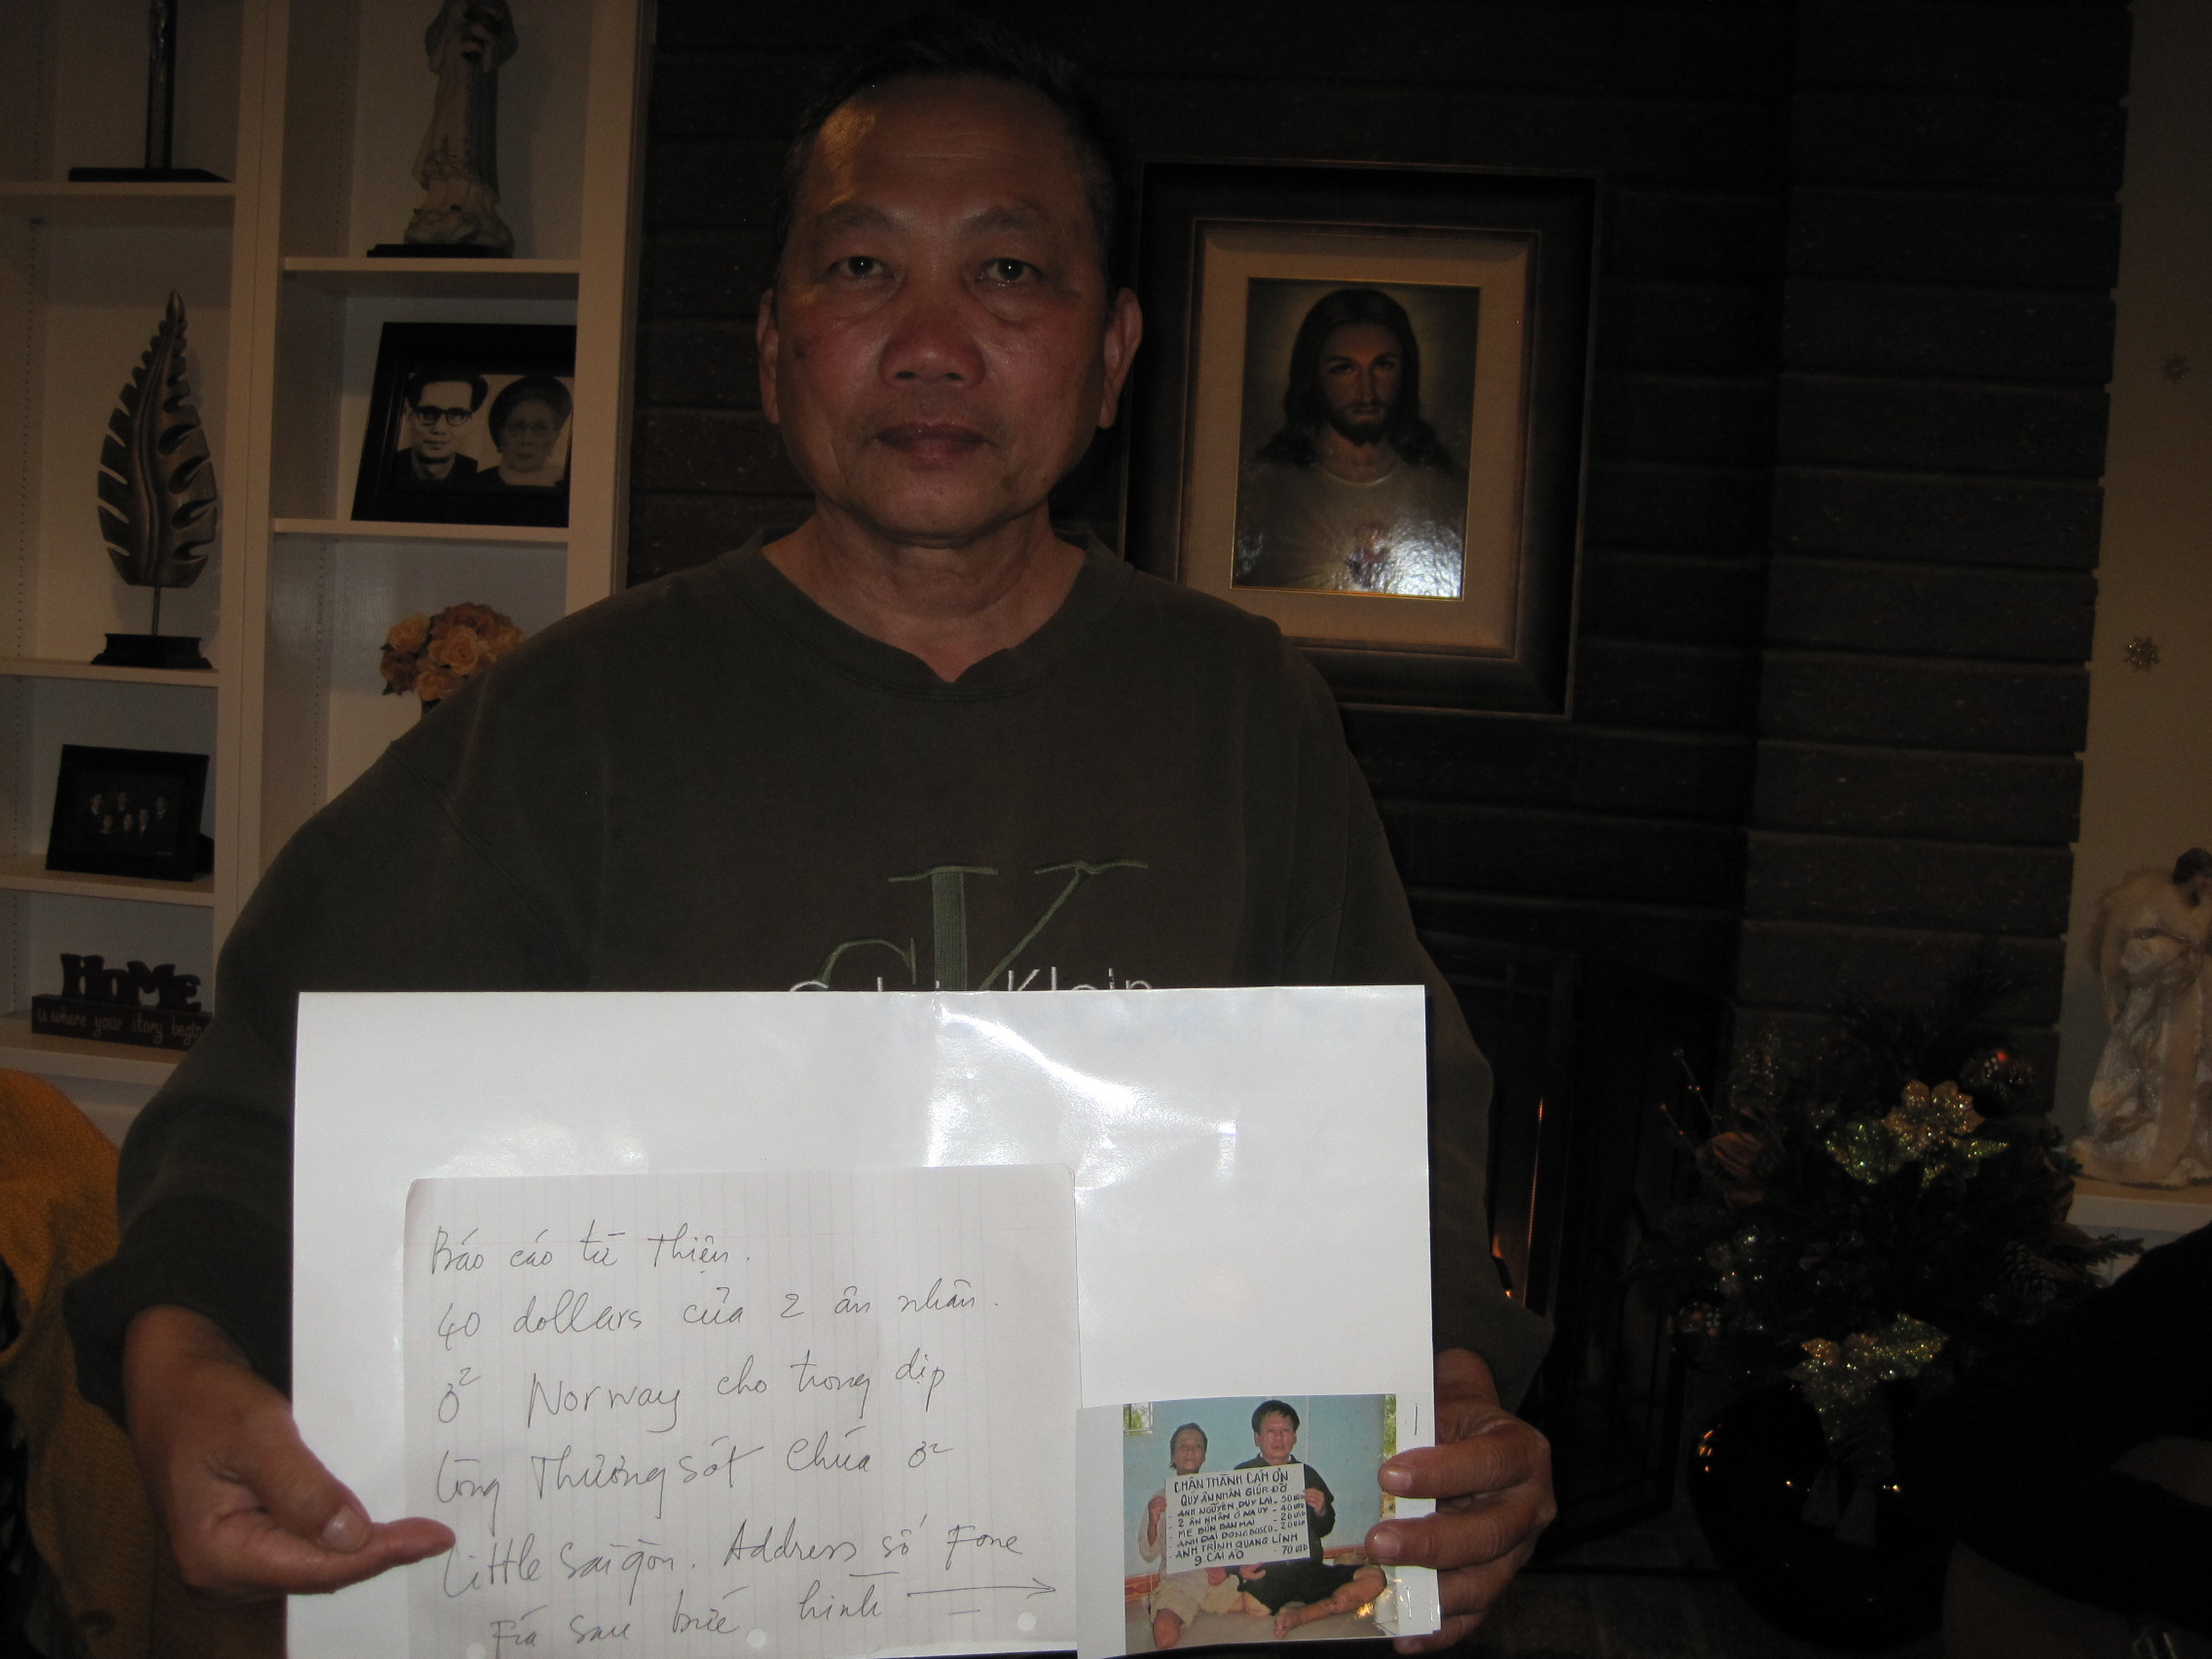 HOME
is where your story begins
CK
Klein
Báo cáo từ Thiện.
40 dollars của 2 ân nhân.
ở Norway cho trong dịp
lòng Thương Sót Chúa ở
Little Saigon. Address số Fone
Fía sau bức hình →
CHÂN THÀNH CÁM ƠN
QUÝ ÂN NHÂN GIÚP ĐỠ
- ANH NGUYỄN DUY LAI - 50 USD
- 2 ÂN NHÂN Ở NA UY - 40 USD
- MẸ BÚN BAN MAI - 20 USD
- ANH ĐẠI DONGBOSCO - 20 USD
- ANH TRỊNH QUANG LĨNH
9 CÁI ÁO - 70 USD